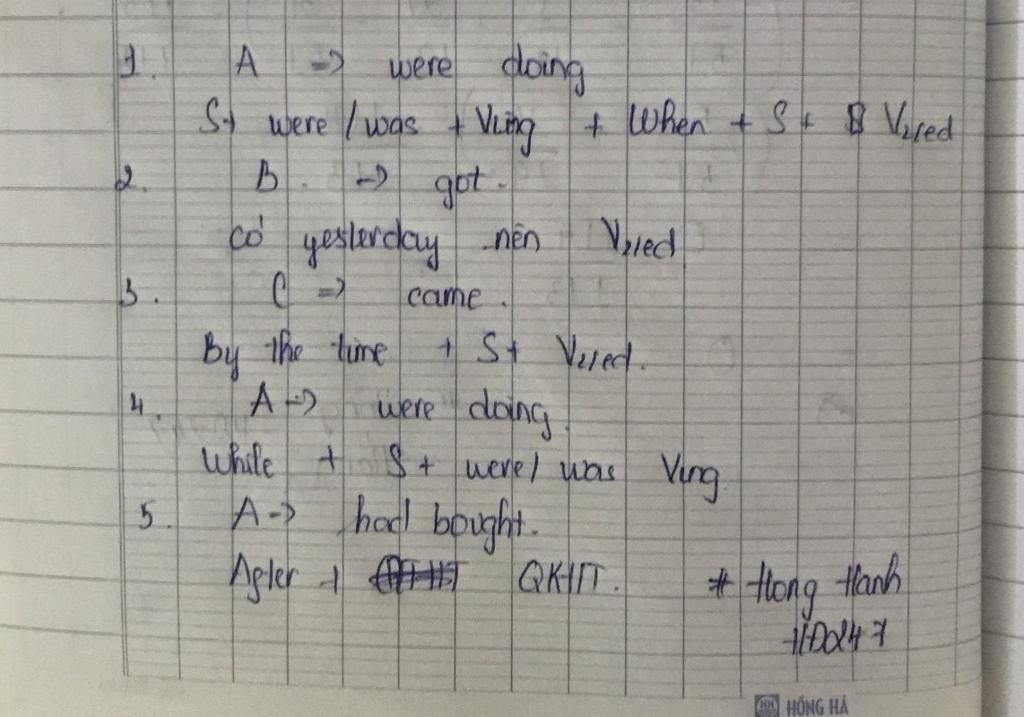 1. A => were doing
S+ were / was + Ving + When + S + V2/ed
2. B. -> got.
có yesterday nên V2/ed
3. C => came.
By the time + S+ V2/ed.
4. A -> were doing.
While + S + were/ was Ving
5. A -> had bought.
After + QKHT. # Hong Hanh
HD247
HỒNG HÀ